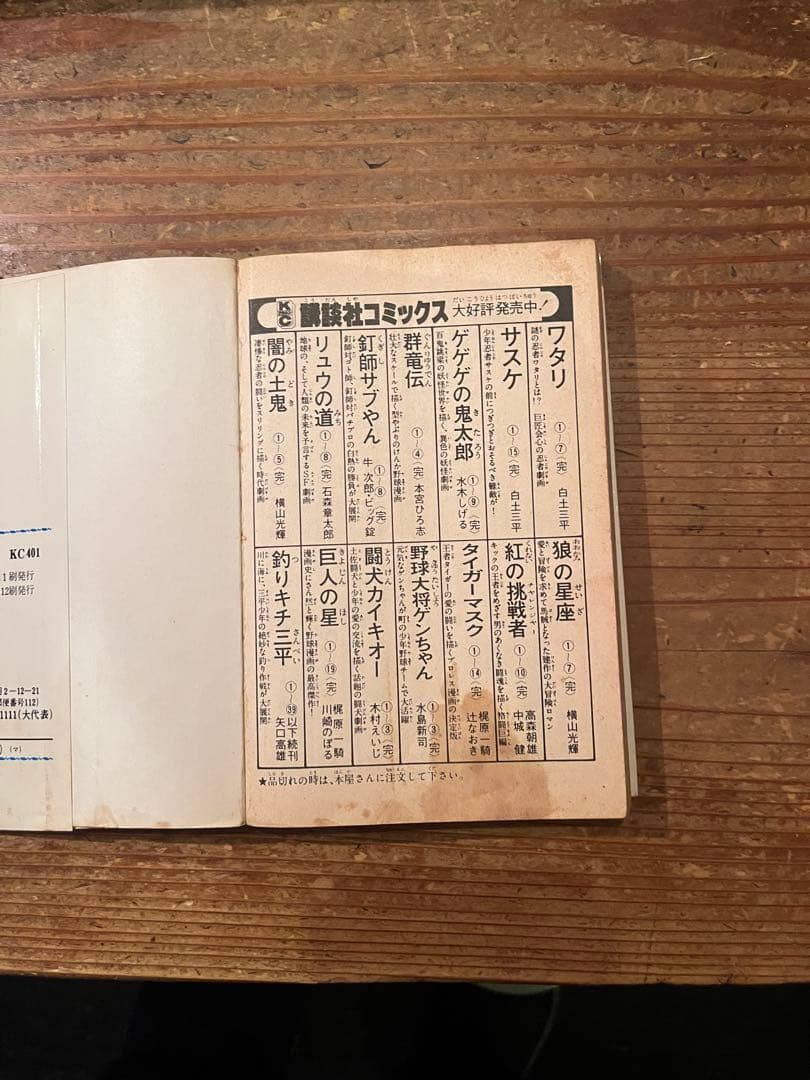 KC 講談社コミックス 大好評発売中！
ワタリ ①～⑦(完) 白土三平
謎の忍者ワタリとは!? 巨匠会心の忍者劇画
サスケ ①～⑮(完) 白土三平
少年忍者サスケの前につぎつぎとおそるべき難敵が！
ゲゲゲの鬼太郎 ①～⑨(完) 水木しげる
百鬼跳梁の妖怪世界を描く、異色の妖怪劇画
群竜伝 ①～④(完) 本宮ひろ志
壮大なスケールで描く型やぶりのけんか野球漫画
釘師サブやん ①～⑧(完) 牛次郎・ビッグ錠
釘師対ゴト師、釘師対パチプロの白熱の勝負が大展開
リュウの道 ①～⑧(完) 石森章太郎
地球の、そして人類の未来を予言するSF劇画
闇の土鬼 ①～⑤(完) 横山光輝
凄惨な忍者の闘いをスリリングに描く時代劇画
狼の星座 ①～⑦(完) 横山光輝
愛と冒険を求めて馬賊となった健作の大冒険ロマン
紅の挑戦者 ①～⑩(完) 高森朝雄 中城健
キックの王者をめざす男のあくなき闘魂を描く格闘巨編
タイガーマスク ①～⑭(完) 梶原一騎 辻なおき
王者タイガーの愛の闘いを描くプロレス漫画の決定版
野球大将ゲンちゃん ①～③(完) 水島新司
元気なゲンちゃんが町の少年野球チームで大活躍
闘犬カイキオー ①～③(完) 木村えいじ
土佐闘犬と少年の愛の交流を描く話題の闘犬劇画
巨人の星 ①～⑲(完) 梶原一騎 川崎のぼる
漫画史にさん然と輝く野球漫画の最高傑作！
釣りキチ三平 ①～㊴以下続刊 矢口高雄
川に海に、三平少年の絶妙な釣り作戦が大展開
★品切れの時は、本屋さんに注文して下さい。
KC401
1刷発行
12刷発行
2-12-21
郵便番号112)
1111(大代表)
(マ)